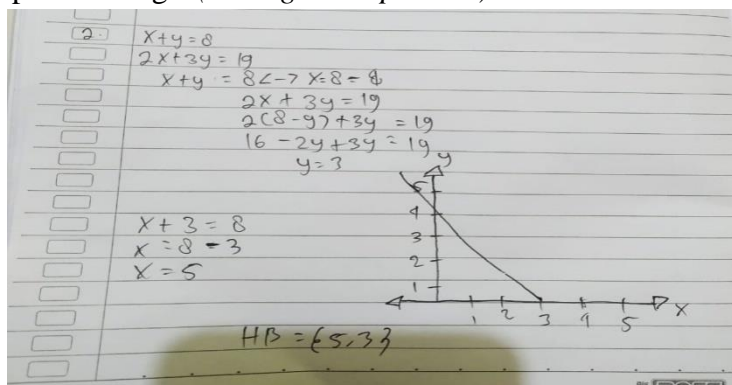 2.
X+y=8
2x+3y=19
x+y = 8<-7 x=8-y
2x + 3y=19
2(8-y)+3y = 19
16 -2y+3y=19
y=3
x + 3 = 8
x = 8 - 3
x = 5
y
5
4
3
2
1
1 2 3 4 5 X
HB = {5,3}